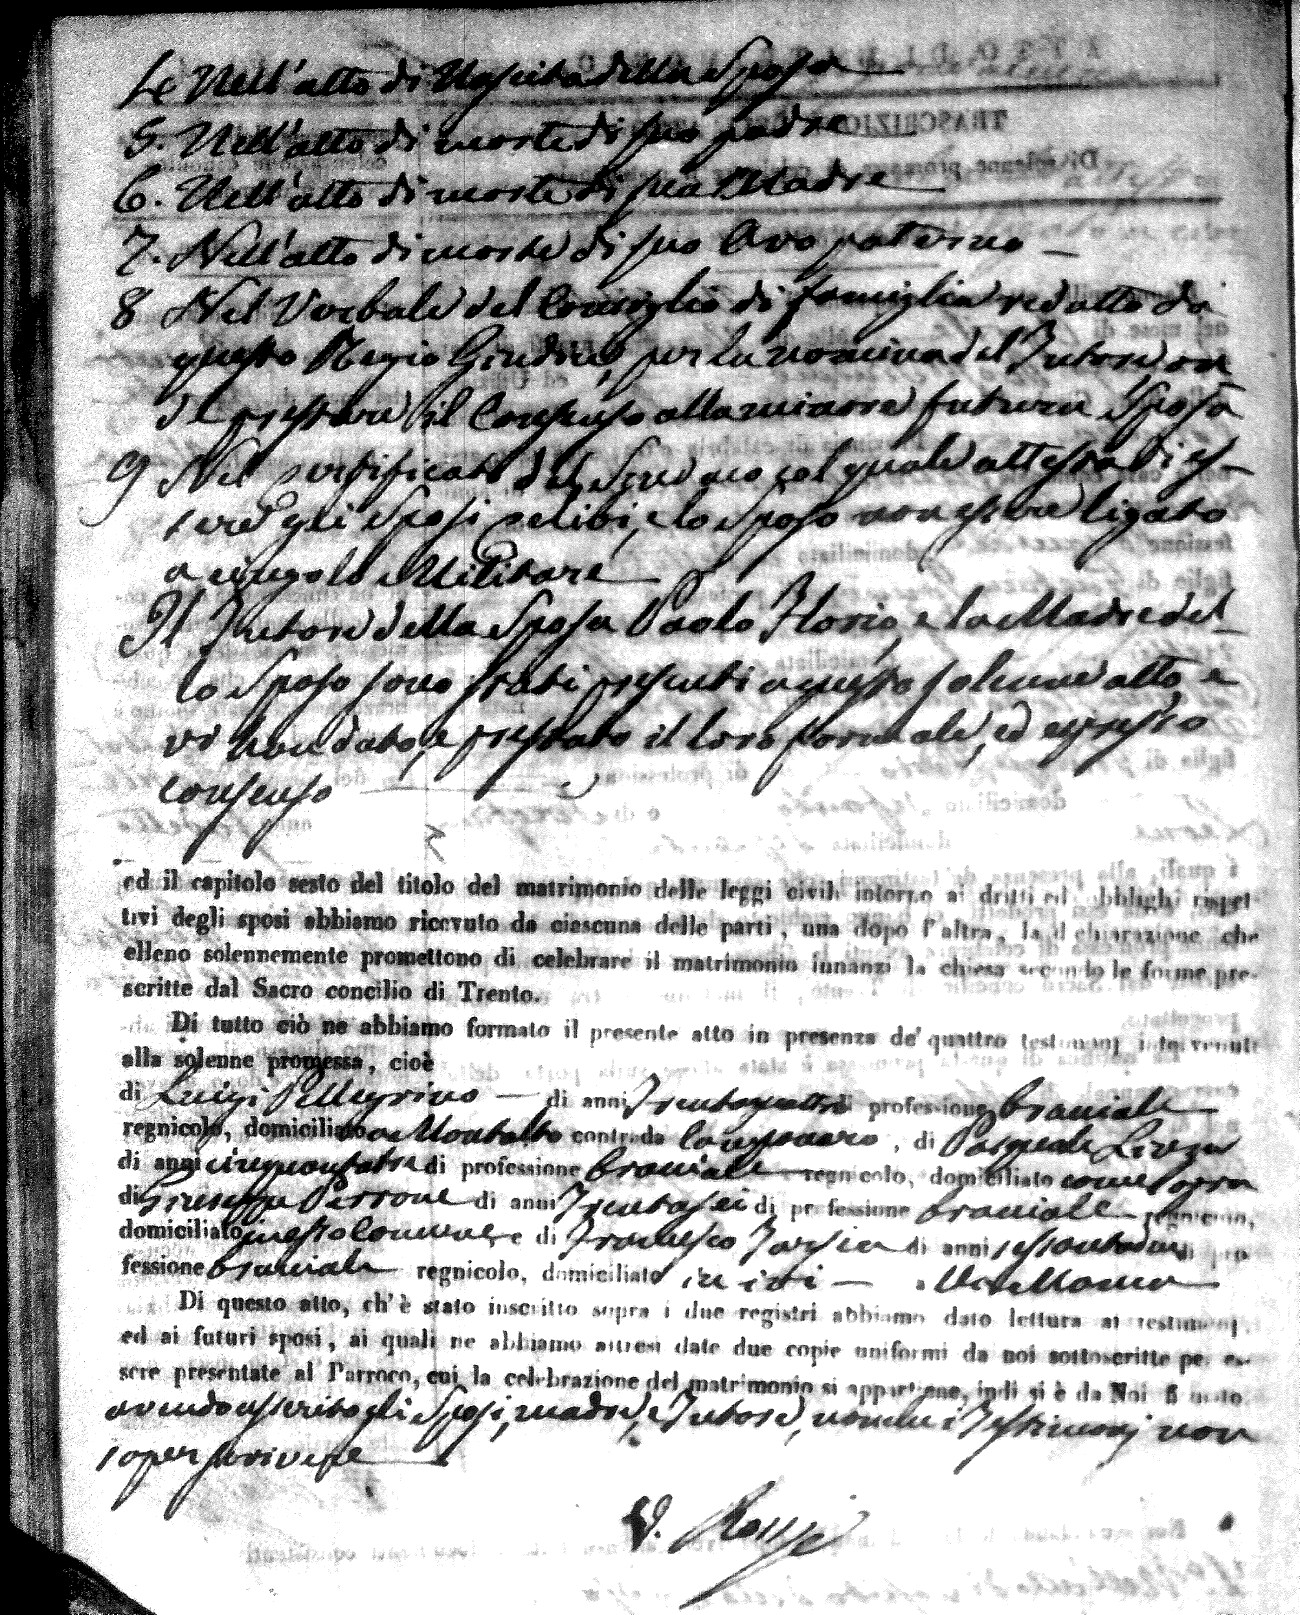 4. Nell'atto di Nascita della Sposa
5. Nell'atto di morte di suo padre
6. Nell'atto di morte di sua Madre
7. Nell'atto di morte di suo Avo paterno
8 Nel Verbale del Consiglio di famiglia redatto da
questo Regio Giudice, per la nomina del Tutore on
de prestare il Consenso alla minore futura Sposa
9 Nel certificato del Sindaco col quale attesta di es-
sere gli Sposi celibi, e lo Sposo non essere ligato
a cingolo Militare
Il Tutore della Sposa Paolo Florio, e la Madre del-
lo Sposo sono stati presenti a questo solenne atto, e
vi han dato, e prestato il loro formale, ed espresso
consenso
ed il capitolo sesto del titolo del matrimonio delle leggi civili intorno ai dritti ed obblighi rispet-
tivi degli sposi abbiamo ricevuto da ciascuna delle parti, una dopo l'altra, la dichiarazione che
elleno solennemente promettono di celebrare il matrimonio innanzi la chiesa secondo le forme pre-
scritte dal Sacro concilio di Trento.
Di tutto ciò ne abbiamo formato il presente atto in presenza de' quattro testimonj intervenuti
alla solenne promessa, cioè
di Luigi Pellegrino di anni Trentaquattro di professione braciale
regnicolo, domiciliato a Montalto contrada , di Pasquale
di anni cinquantatre di professione braciale regnicolo, domiciliato come sopra
di Giuseppe Perrone di anni Trentasei di professione braciale regnicolo,
domiciliato in questo Comune, e di Francesco di anni sessantadue di pro
fessione braciale regnicolo, domiciliato in ivi
Di questo atto, ch'è stato inscritto sopra i due registri abbiamo dato lettura ai testimonj,
ed ai futuri sposi, ai quali ne abbiamo altresì date due copie uniformi da noi sottoscritte per es-
sere presentate al Parroco, cui la celebrazione del matrimonio si appartiene, indi si è da Noi firmato
avendo asserito gli Sposi, madre, e Tutore, nonche i Testimonj non
saper scrivere